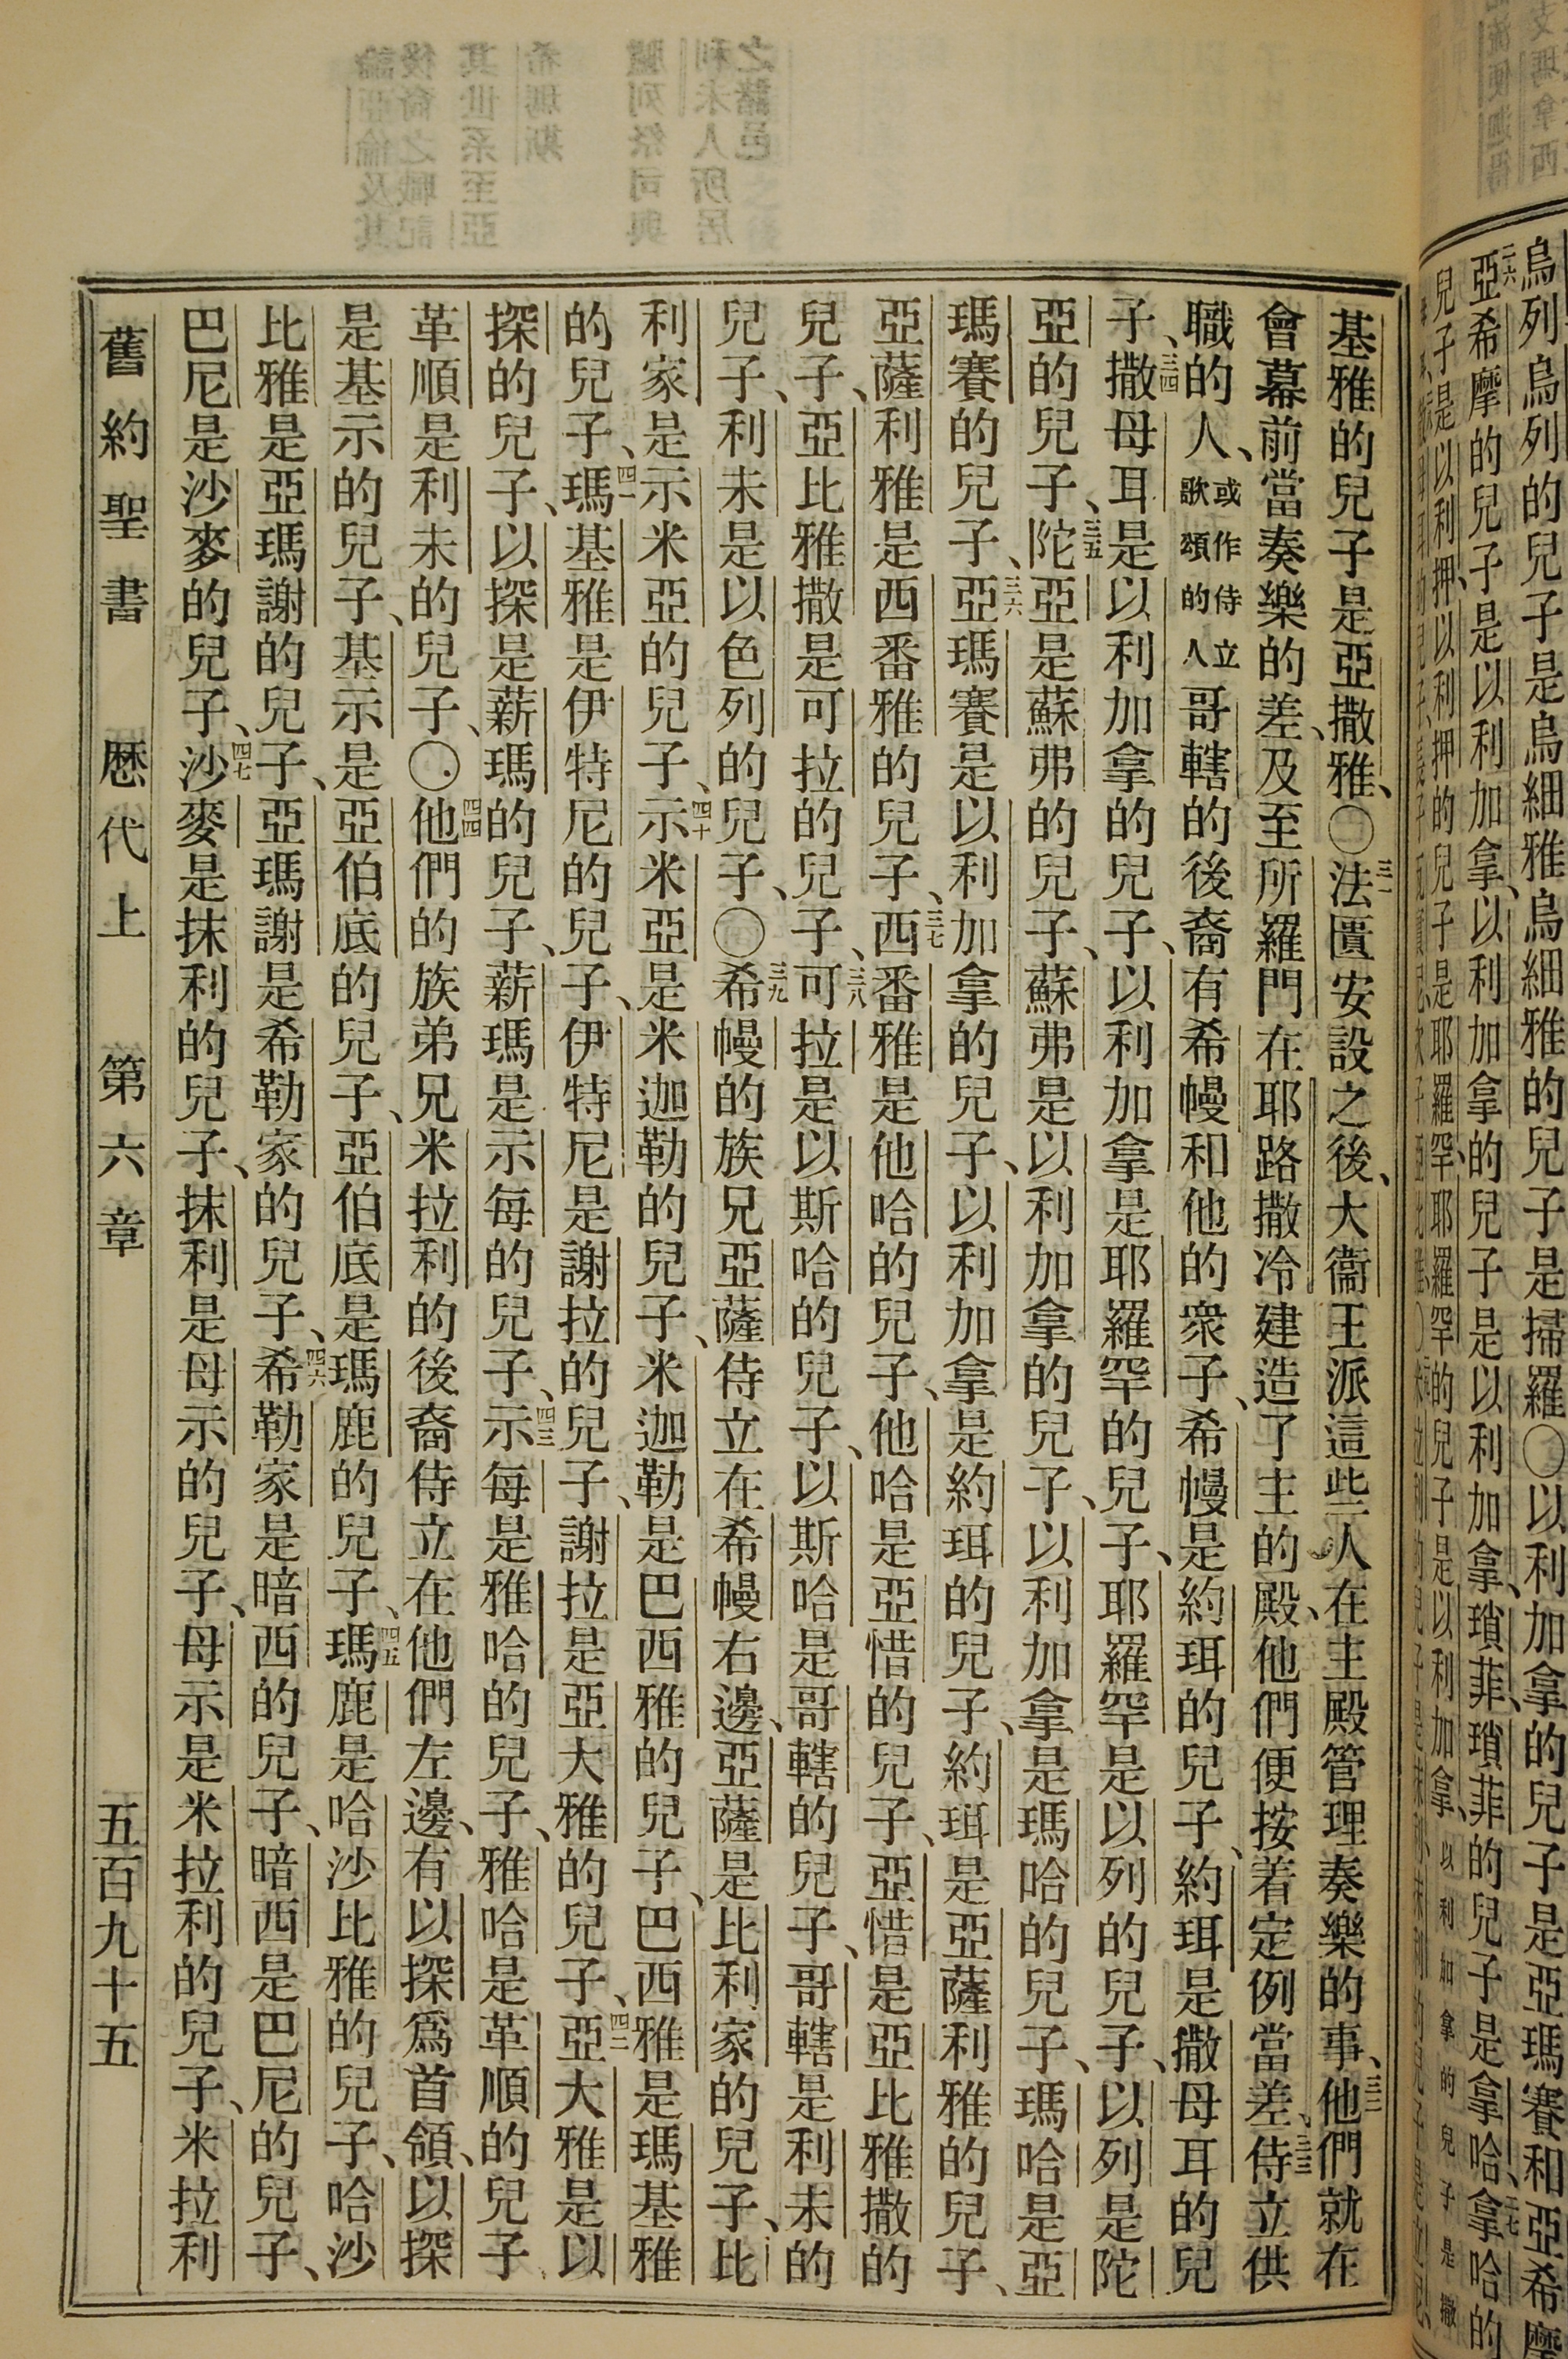 烏列烏列的兒子是烏細雅烏細雅的兒子是掃羅〇以利加拿的兒子是亞瑪賽和亞希摩
二六亞希摩的兒子是以利加拿、以利加拿的兒子是以利加拿、瑣菲、瑣菲的兒子是拿哈、二七拿哈的
兒子是以利押、以利押的兒子是耶羅罕、耶羅罕的兒子是以利加拿、以利加拿的兒子是撒
基雅的兒子是亞撒雅、〇三一法匱安設之後、大衞王派這些人在主殿管理奏樂的事、三二他們就在
會幕前當奏樂的差、及至所羅門在耶路撒冷建造了主的殿、他們便按着定例當差、三三侍立供
職的人、或作侍立歌頌的人哥轄的後裔有希幔和他的衆子、希幔是約珥的兒子、約珥是撒母耳的兒
子、三四撒母耳是以利加拿的兒子、以利加拿是耶羅罕的兒子、耶羅罕是以列的兒子、以列是陀
亞的兒子、三五陀亞是蘇弗的兒子、蘇弗是以利加拿的兒子、以利加拿是瑪哈的兒子、瑪哈是亞
瑪賽的兒子、三六亞瑪賽是以利加拿的兒子、以利加拿是約珥的兒子、約珥是亞薩利雅的兒子、
亞薩利雅是西番雅的兒子、三七西番雅是他哈的兒子、他哈是亞惜的兒子、亞惜是亞比雅撒的
兒子、亞比雅撒是可拉的兒子、三八可拉是以斯哈的兒子、以斯哈是哥轄的兒子、哥轄是利未的
兒子、利未是以色列的兒子、〇三九希幔的族兄亞薩侍立在希幔右邊、亞薩是比利家的兒子、比
利家是示米亞的兒子、四十示米亞是米迦勒的兒子、米迦勒是巴西雅的兒子、巴西雅是瑪基雅
的兒子、四一瑪基雅是伊特尼的兒子、伊特尼是謝拉的兒子、謝拉是亞大雅的兒子、四二亞大雅是以
探的兒子、以探是薪瑪的兒子、薪瑪是示每的兒子、四三示每是雅哈的兒子、雅哈是革順的兒子
革順是利未的兒子、〇四四他們的族弟兄米拉利的後裔侍立在他們左邊、有以探爲首領、以探
是基示的兒子、基示是亞伯底的兒子、亞伯底是瑪鹿的兒子、四五瑪鹿是哈沙比雅的兒子、哈沙
比雅是亞瑪謝的兒子、亞瑪謝是希勒家的兒子、四六希勒家是暗西的兒子、暗西是巴尼的兒子、
巴尼是沙麥的兒子、四七沙麥是抹利的兒子、抹利是母示的兒子、母示是米拉利的兒子、米拉利
舊約聖書　歷代上　第六章　五百九十五